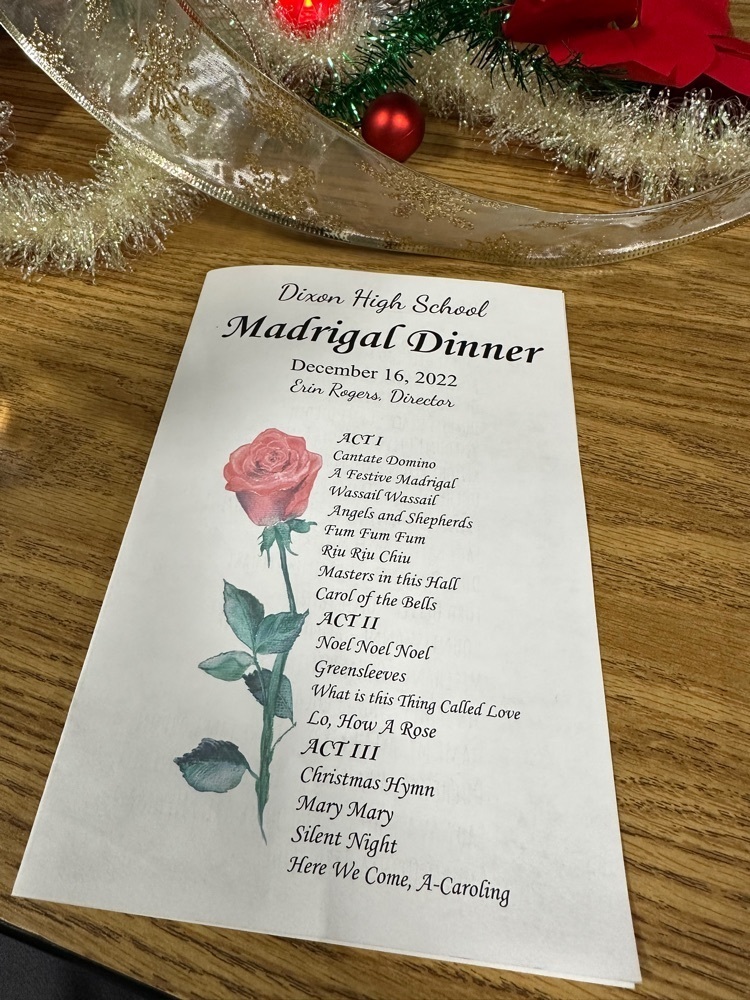 Dixon High School
Madrigal Dinner
December 16, 2022
Erin Rogers, Director
ACT I
Cantate Domino
A Festive Madrigal
Wassail Wassail
Angels and Shepherds
Fum Fum Fum
Riu Riu Chiu
Masters in this Hall
Carol of the Bells
ACT II
Noel Noel Noel
Greensleeves
What is this Thing Called Love
Lo, How A Rose
ACT III
Christmas Hymn
Mary Mary
Silent Night
Here We Come, A-Caroling